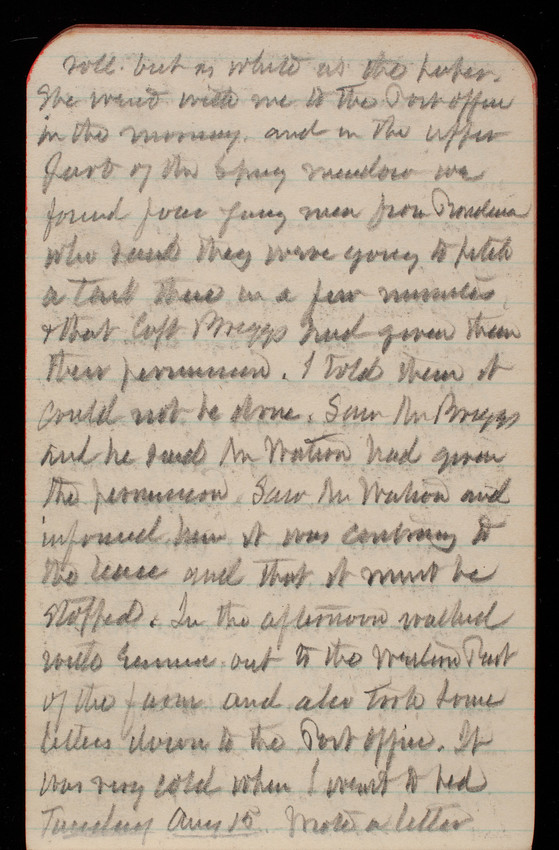 well. but as white as the paper.
She went with me to the Post office
in the morning. and in the upper
part of the spring meadow we
found four young men from Providence
who said they were going to pitch
a tent there in a few minutes
& that Capt Briggs had given them
their permission. I told them it
could not be done. Saw Mr Briggs
and he said Mr Watson had given
the permission. Saw Mr Watson and
informed him it was contrary to
the lease and that it must be
stopped. In the afternoon walked
with Emma out to the western Part
of the farm and also took some
letters down to the Post office. It
was very cold when I went to bed
Tuesday Aug 15 Wrote a letter